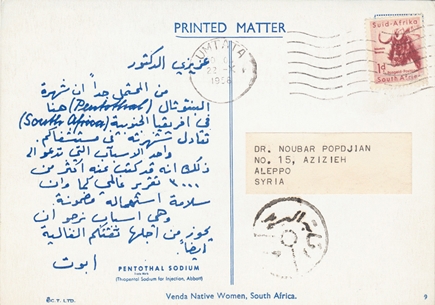 PRINTED MATTER
عزيزي الدكتور
من المحتمل جداً ان شهرة
البنتوثال (Pentothal) هنا
في افريقيا الجنوبية (South Africa)
تعادل شهرته في مستشفاكم.
واحد الاسباب التي تدعو الى
ذلك انه قد كتب عنه اكثر من
٣٠٠٠ تقرير عالمي كما وان
سلامة استعماله مضمونة.
وهي اسباب نرجو ان
يحوز من اجلها ثقتكم الغالية
ايضاً.
ابوت
PENTOTHAL SODIUM
(Thiopental Sodium for Injection, Abbott)
UMTATA
1956
Suid-Afrika
1d
South Africa
DR. NOUBAR POPDJIAN
NO. 15, AZIZIEH
ALEPPO
SYRIA
C.T. LTD.
Venda Native Women, South Africa.
9